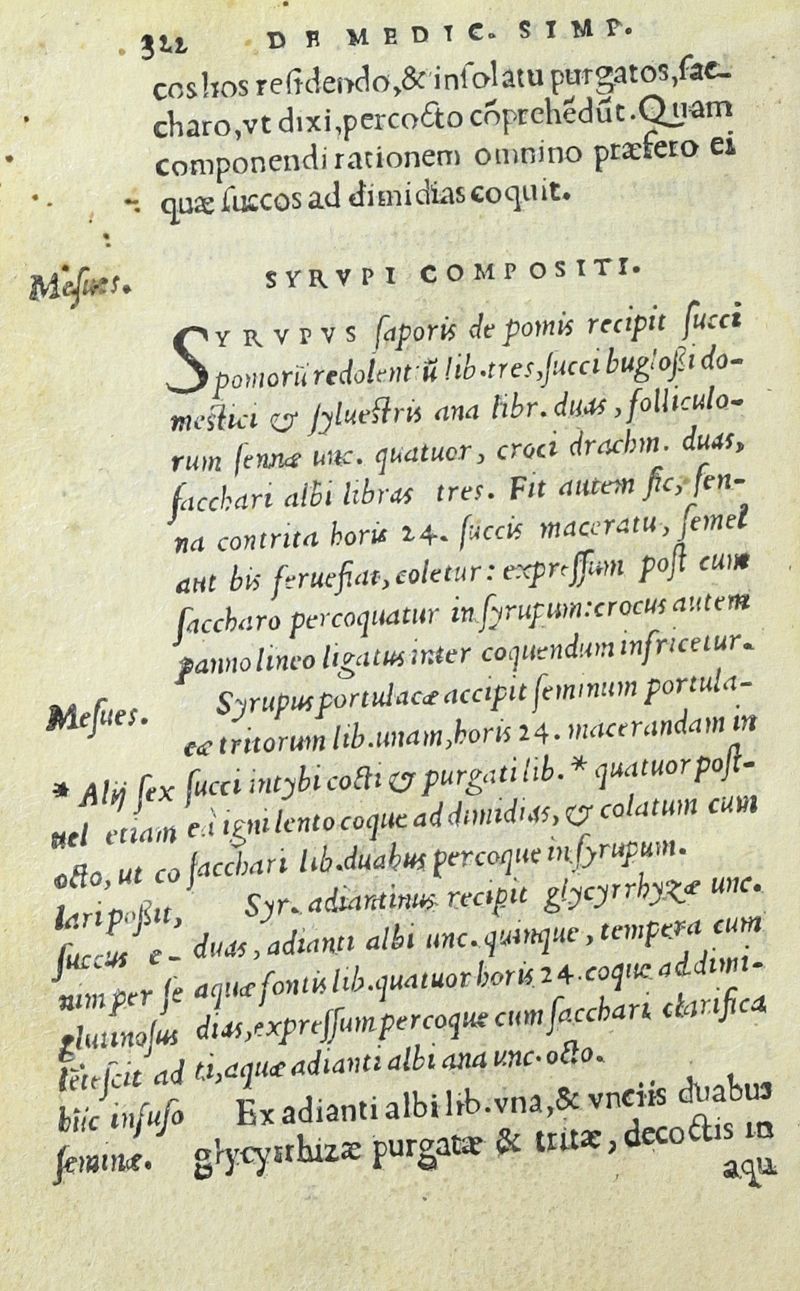 322 DE MEDIC. SIMP.
cos hos residendo, & insolatu purgatos, sac-
charo, vt dixi, percocto cõprehẽdũt. Quam
componendi rationem omnino præfero ei
quæ succos ad dimidias coquit.
SYRVPI COMPOSITI.
Mesues.
SYRVPVS saporis de pomis recipit succi
pomorũ redolentiũ lib. tres, succi buglossi do-
mestici & syluestris ana libr. duas, folliculo-
rum sennæ unc. quatuor, croci drachm. duas,
sacchari albi libras tres. Fit autem sic, sen-
na contrita horis 24. succis maceratu, semel
aut bis feruefiat, coletur: expressum post cum
saccharo percoquatur in syrupum: crocus autem
panno lineo ligatus inter coquendum infricetur.
Mesues.
Syrupus portulacæ accipit seminum portula-
cæ tritorum lib. unam, horis 24. macerandam in
succi intybi cocti & purgati lib. * quatuor post-
eà igni lento coque ad dimidias, & colatum cum
sacchari lib. duabus percoque in syrupum.
Syr. adiantinus recipit glycyrrhyzæ unc.
duas, adianti albi unc. quinque, tempera cum
aquæ fontis lib. quatuor horis 24. coque ad dimi-
dias, expressum percoque cum sacchari clarifica
ti, aquæ adianti albi ana unc. octo.
Ex adianti albi lib. vna, & vnciis duabus
glycyrrhizæ purgatæ & tritæ, decoctis in
aqu
* Alij sex
uel etiam
octo, ut co
lari poßit,
succus e-
nim per se
glutinosus
lẽtescit ad
hũc infuso
semine.